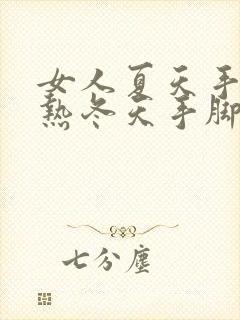 女人夏天手
热冬天手脚
七分尘